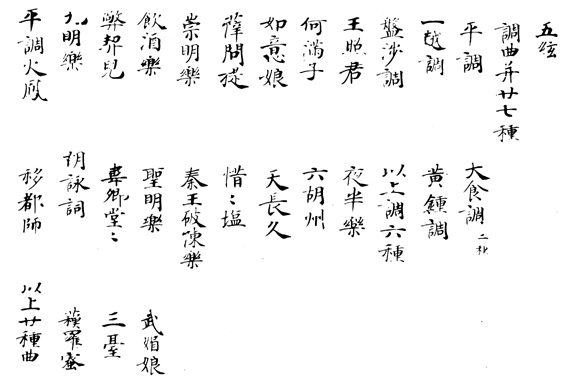 五絃
調曲并廿七種
平調 大食調 二種
一越調 黃鍾調
盤涉調 以上調六種
王照君 夜半樂
何滿子 六胡州
如意娘 天長久
薛問提 惜〻塩
崇明樂 秦王破陳樂
飲酒樂 聖明樂 武媚娘
弊契兒 韋卿堂〻 三臺
九明樂 胡詠詞 蘓羅蜜
平調火鳳 移都師 以上廿種曲